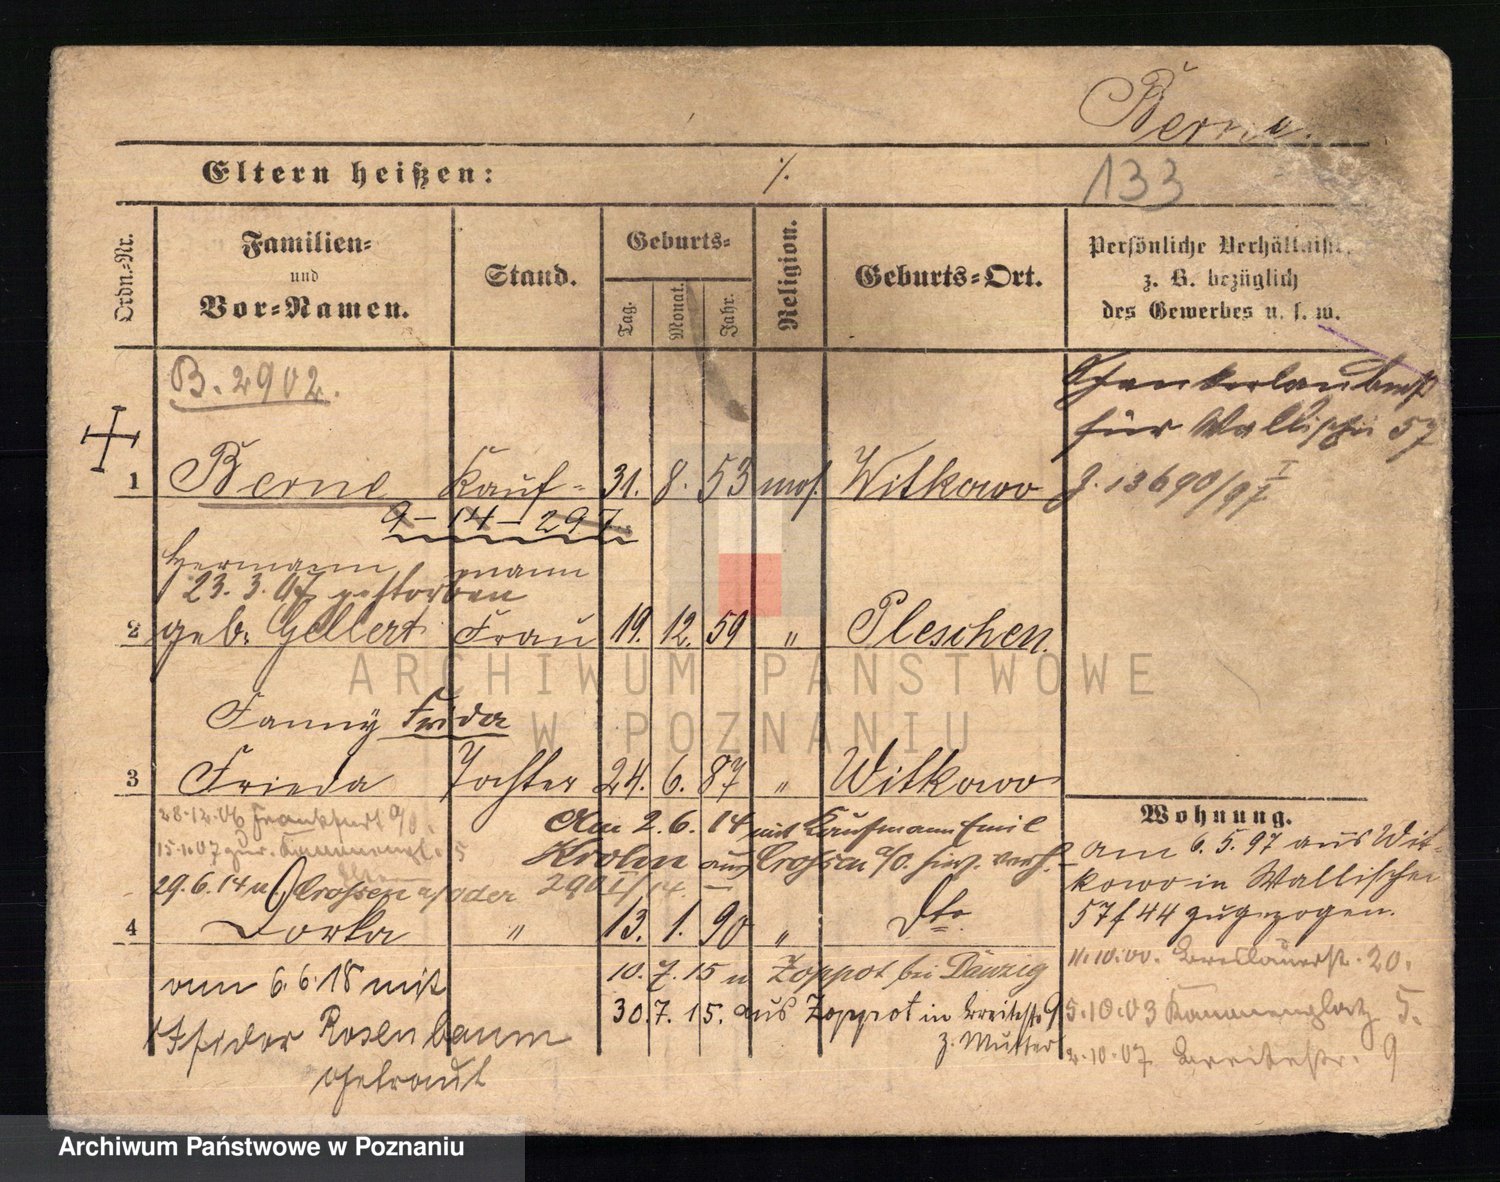 Berne.
Eltern heißen: ./.
133
Ordn.-Nr.
Familien-
und
Vor-Namen.
Stand.
Geburts-
Tag.
Monat.
Jahr.
Religion.
Geburts-Ort.
Persönliche Verhältnisse,
z. B. bezüglich
des Gewerbes u. s. w.
B. 2902.
Schankerlaubniß
für Wallischei 57
J. 13690/97 I
1 Berne Kauf- 31. 8. 53 mos. Witkowo
9-14-297
Hermann mann
23. 3. 07 gestorben
2 geb. Gellert Frau 19. 12. 59 " Pleschen.
Fanny Frida
3 Frieda Tochter 24. 6. 87 " Witkowo
28.12.06 Frankfurt a/O.
15.1.07 zur. 5
29.6.14 n Crossen a/Oder
Am 2. 6. 14 mit Kaufmann Emil
Krohn aus Crossen a/O. verh.
290 I/14
4 Dorka " 13. 1. 90 " Dto
am 6.6.18 mit
Isidor Rosenbaum
getraut
10. 7. 15 n Zoppot bei Danzig
30. 7. 15. aus Zoppot in Breitestr. 9
z. Mutter
Wohnung.
am 6. 5. 97 aus Wit-
kowo in Wallischei
57 f 44 zugezogen.
11.10.00. Breslauerstr. 20.
5.10.03 5.
2.10.07 Breitestr. 9
ARCHIWUM PAŃSTWOWE
W POZNANIU
Archiwum Państwowe w Poznaniu